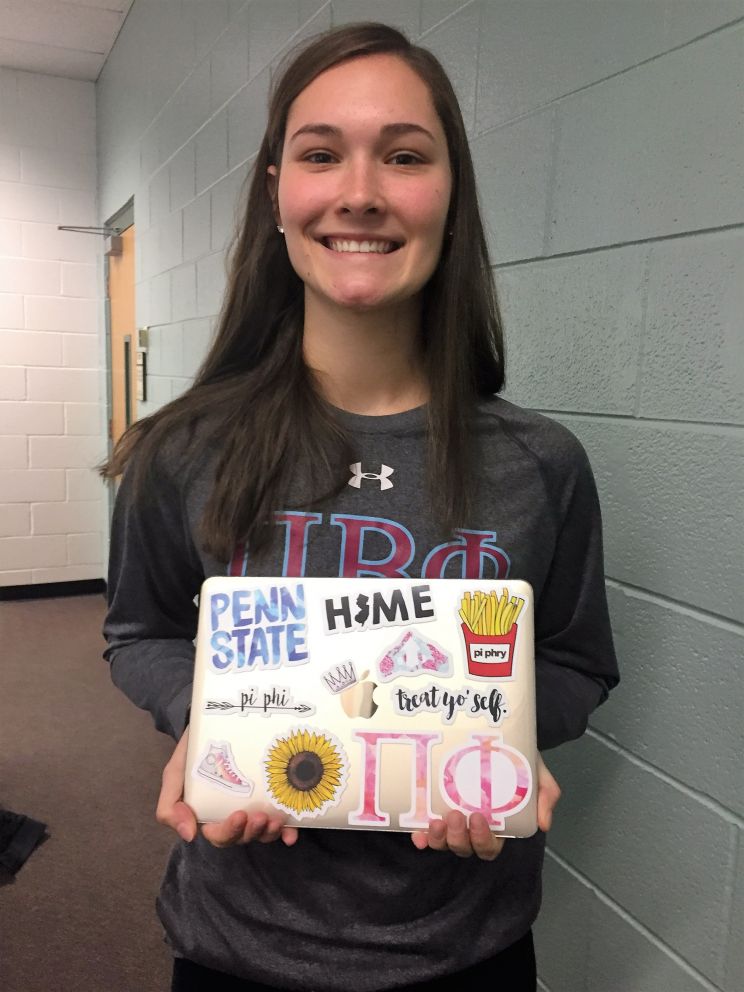 ΠΒΦ
PENN
STATE
HOME
pi phry
pi phi
treat yo' self.
ΠΦ